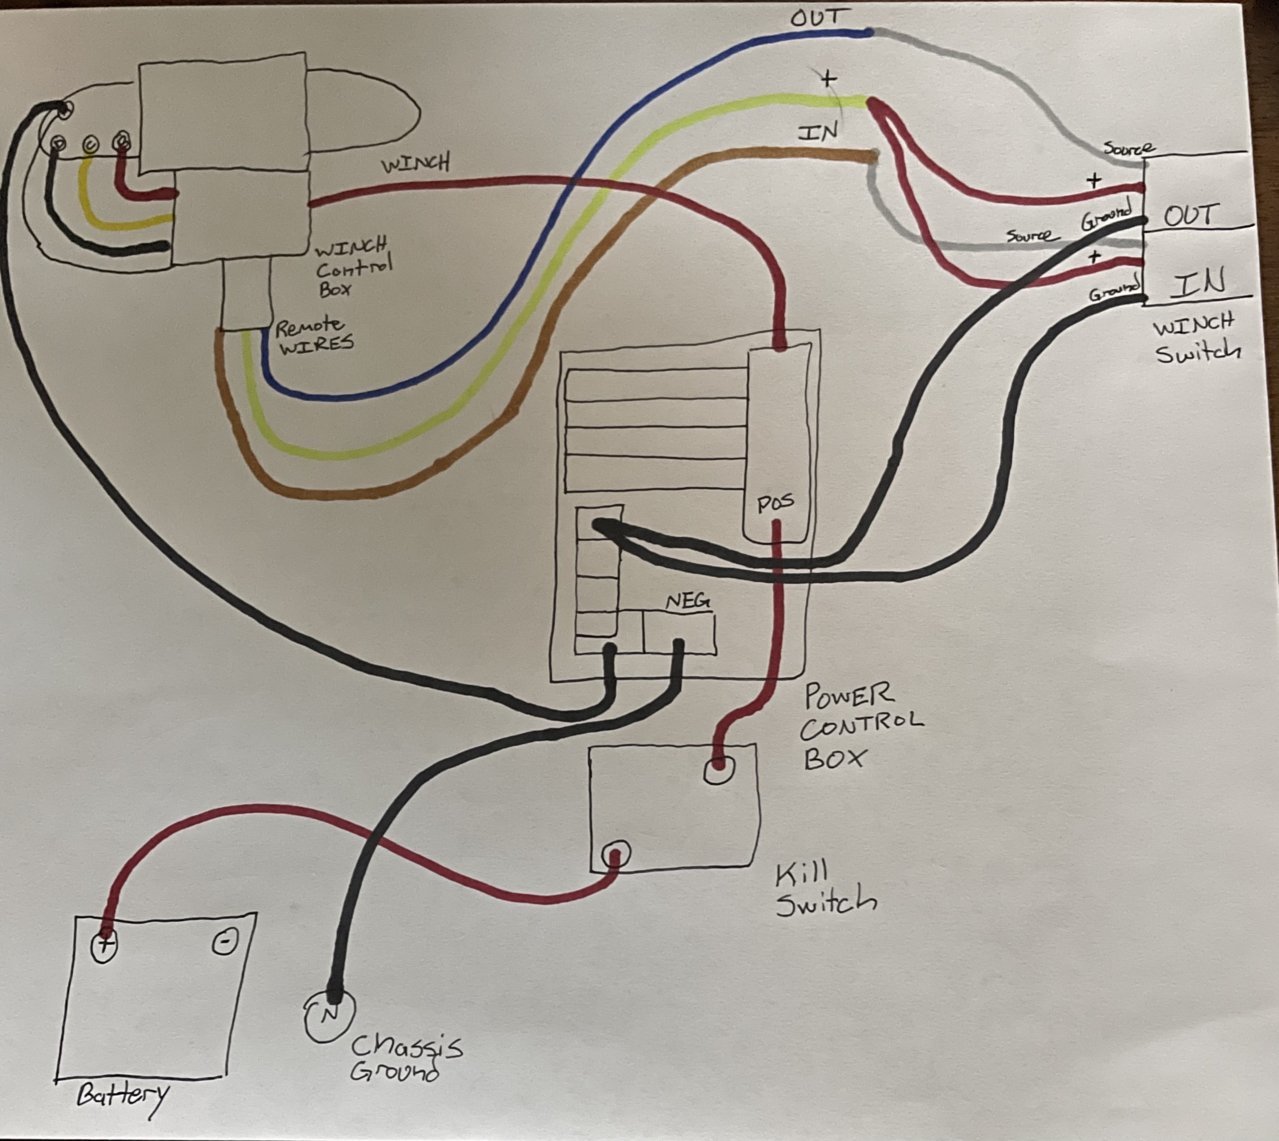 OUT
+
IN
WINCH
Source
+
Ground
OUT
Source
+
Ground
IN
WINCH
Switch
WINCH
Control
Box
Remote
WIRES
POS
NEG
POWER
CONTROL
BOX
Kill
Switch
+
-
N
Chassis
Ground
Battery